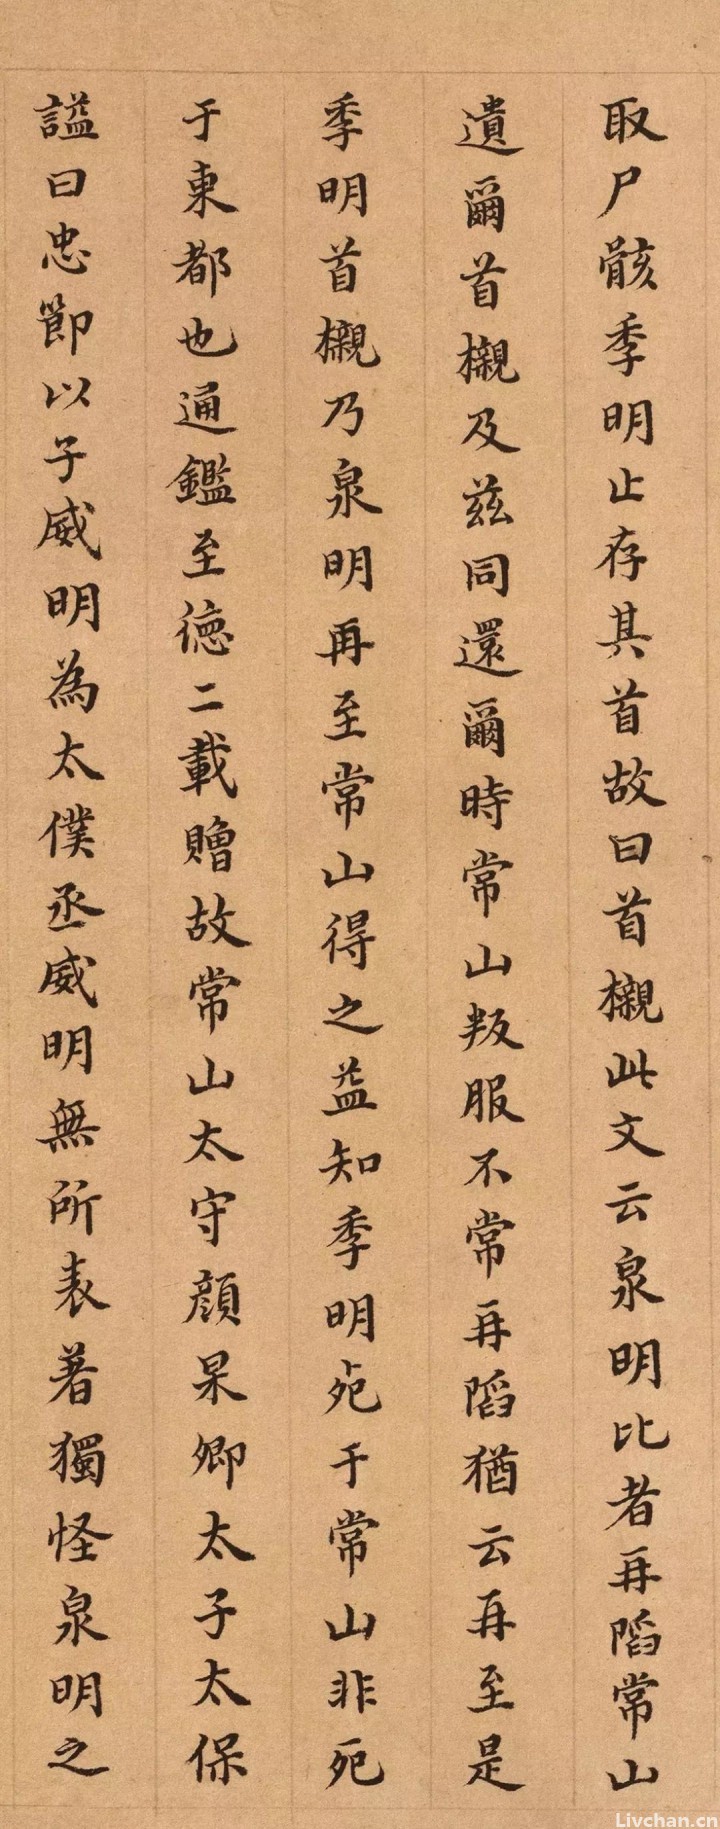 取尸骸季明止存其首故曰首櫬此文云泉明比者再陷常山
遺爾首櫬及兹同還爾時常山叛服不常再陷猶云再至是
季明首櫬乃泉明再至常山得之益知季明死于常山非死
于東都也通鑑至德二載贈故常山太守顔杲卿太子太保
諡曰忠節以子威明為太僕丞威明無所表著獨怪泉明之
Livchan.cn